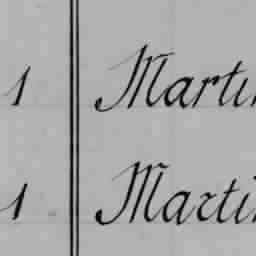 1 Martin
1 Martin